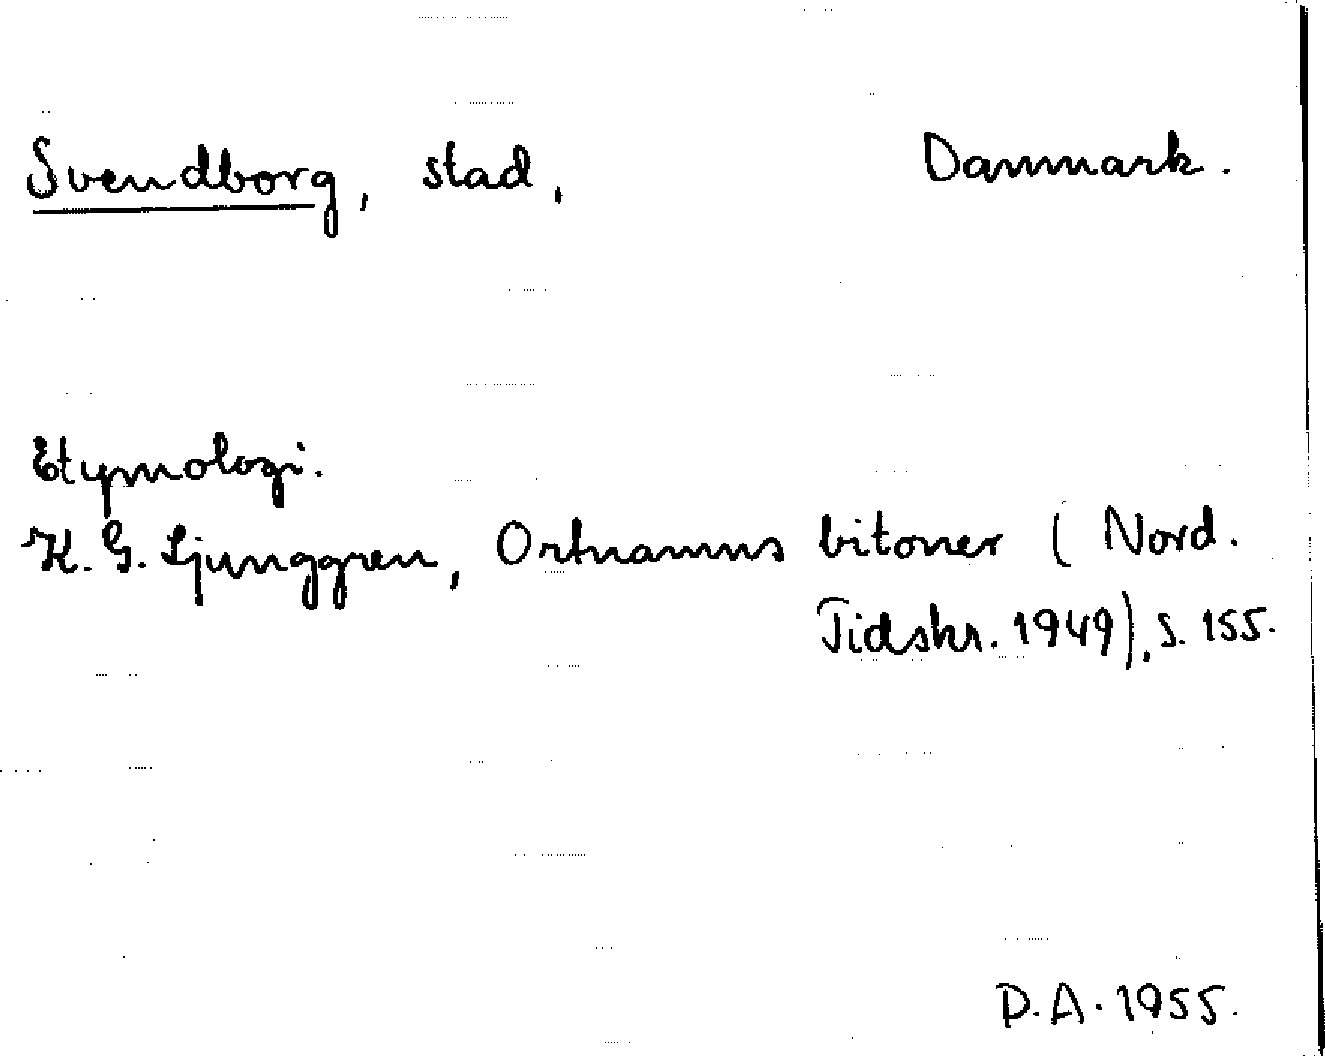 Svendborg, stad, Danmark.
Etymologi.
K. G. Ljunggren, Ortnamns bitoner (Nord.
Tidskr. 1949), s. 155.
D.A. 1955.